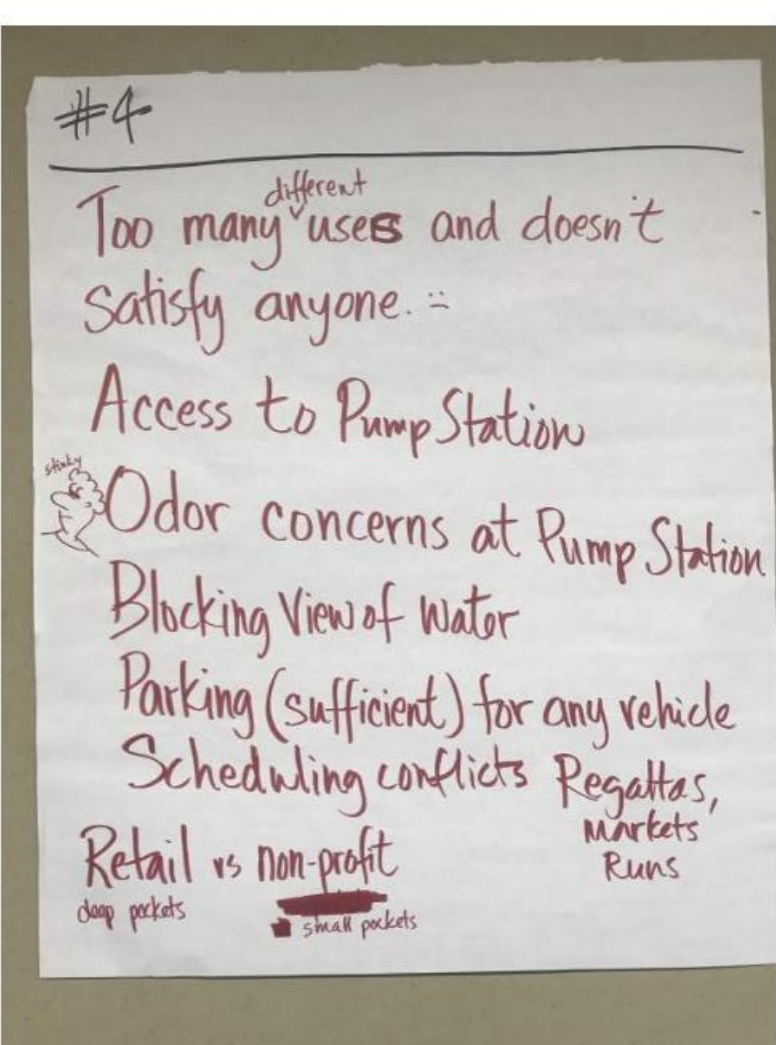 #4
Too many different uses and doesn't
satisfy anyone.
Access to Pump Station
stinky
Odor concerns at Pump Station
Blocking View of Water
Parking (sufficient) for any vehicle
Scheduling conflicts Regattas,
Markets
Runs
Retail vs non-profit
deep pockets
small pockets